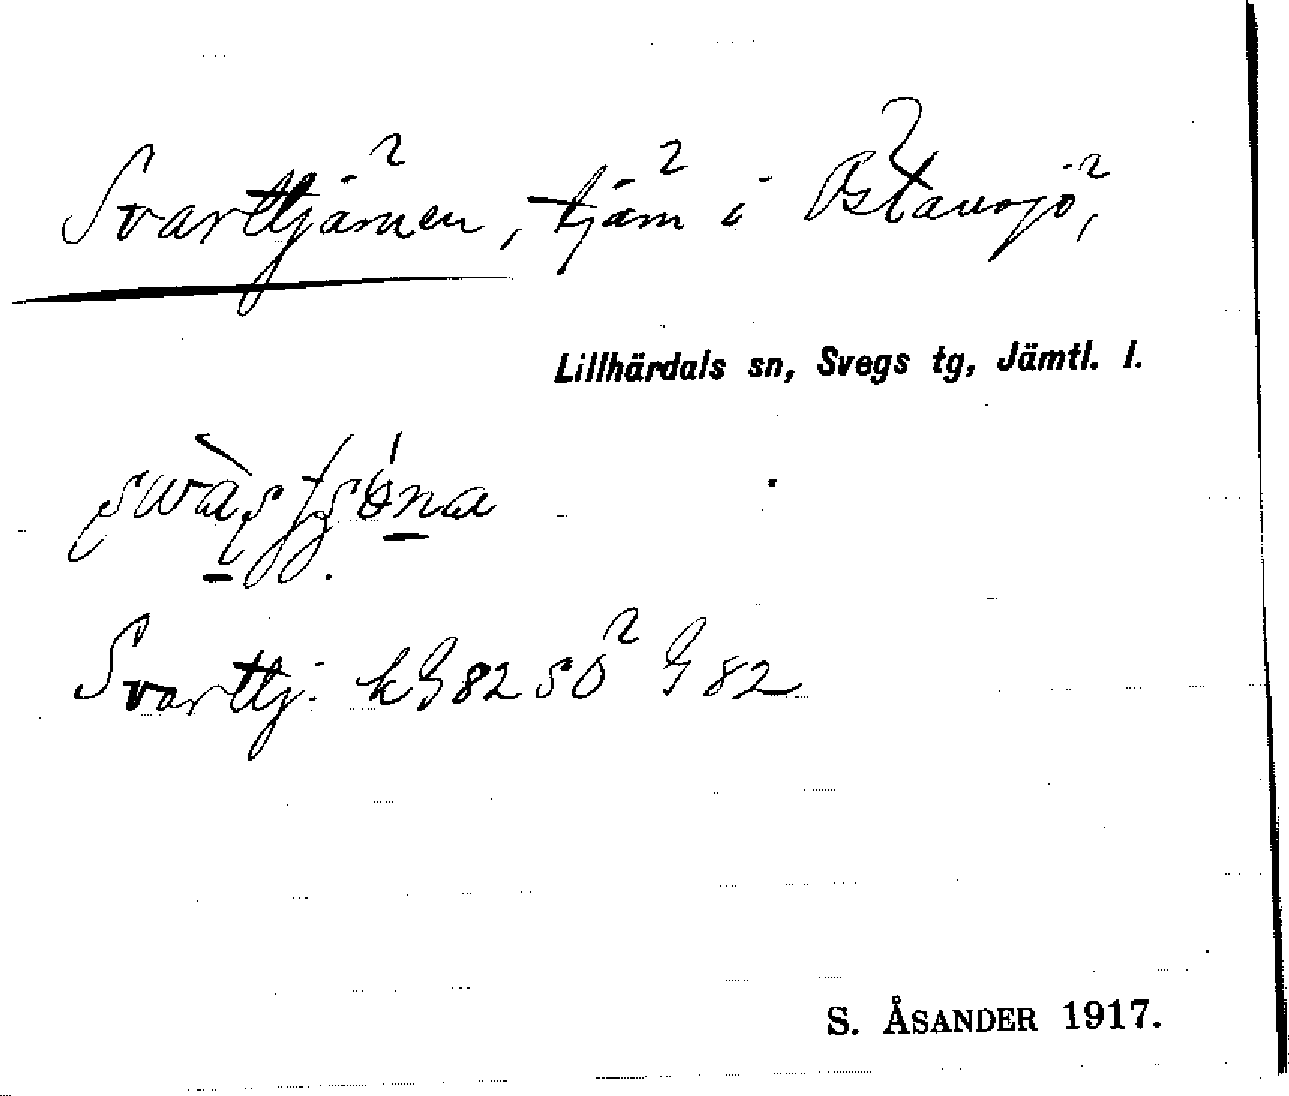 Svarttjärnen, tjärn i Östansjö,
Lillhärdals sn, Svegs tg, Jämtl. l.
Svarttj. k G 82 SO G 82
S. ÅSANDER 1917.